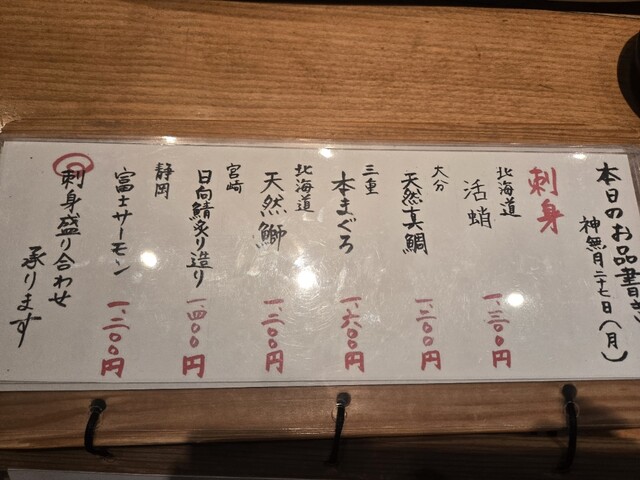 本日のお品書き
神無月二十七日(月)
刺身
北海道
活蛸
一、三〇〇円
大分
天然真鯛
一、三〇〇円
三重
本まぐろ
一、六〇〇円
北海道
天然鰤
一、二〇〇円
宮崎
日向鯖炙り造り
一、四〇〇円
静岡
富士サーモン
一、二〇〇円
刺身盛り合わせ
承ります